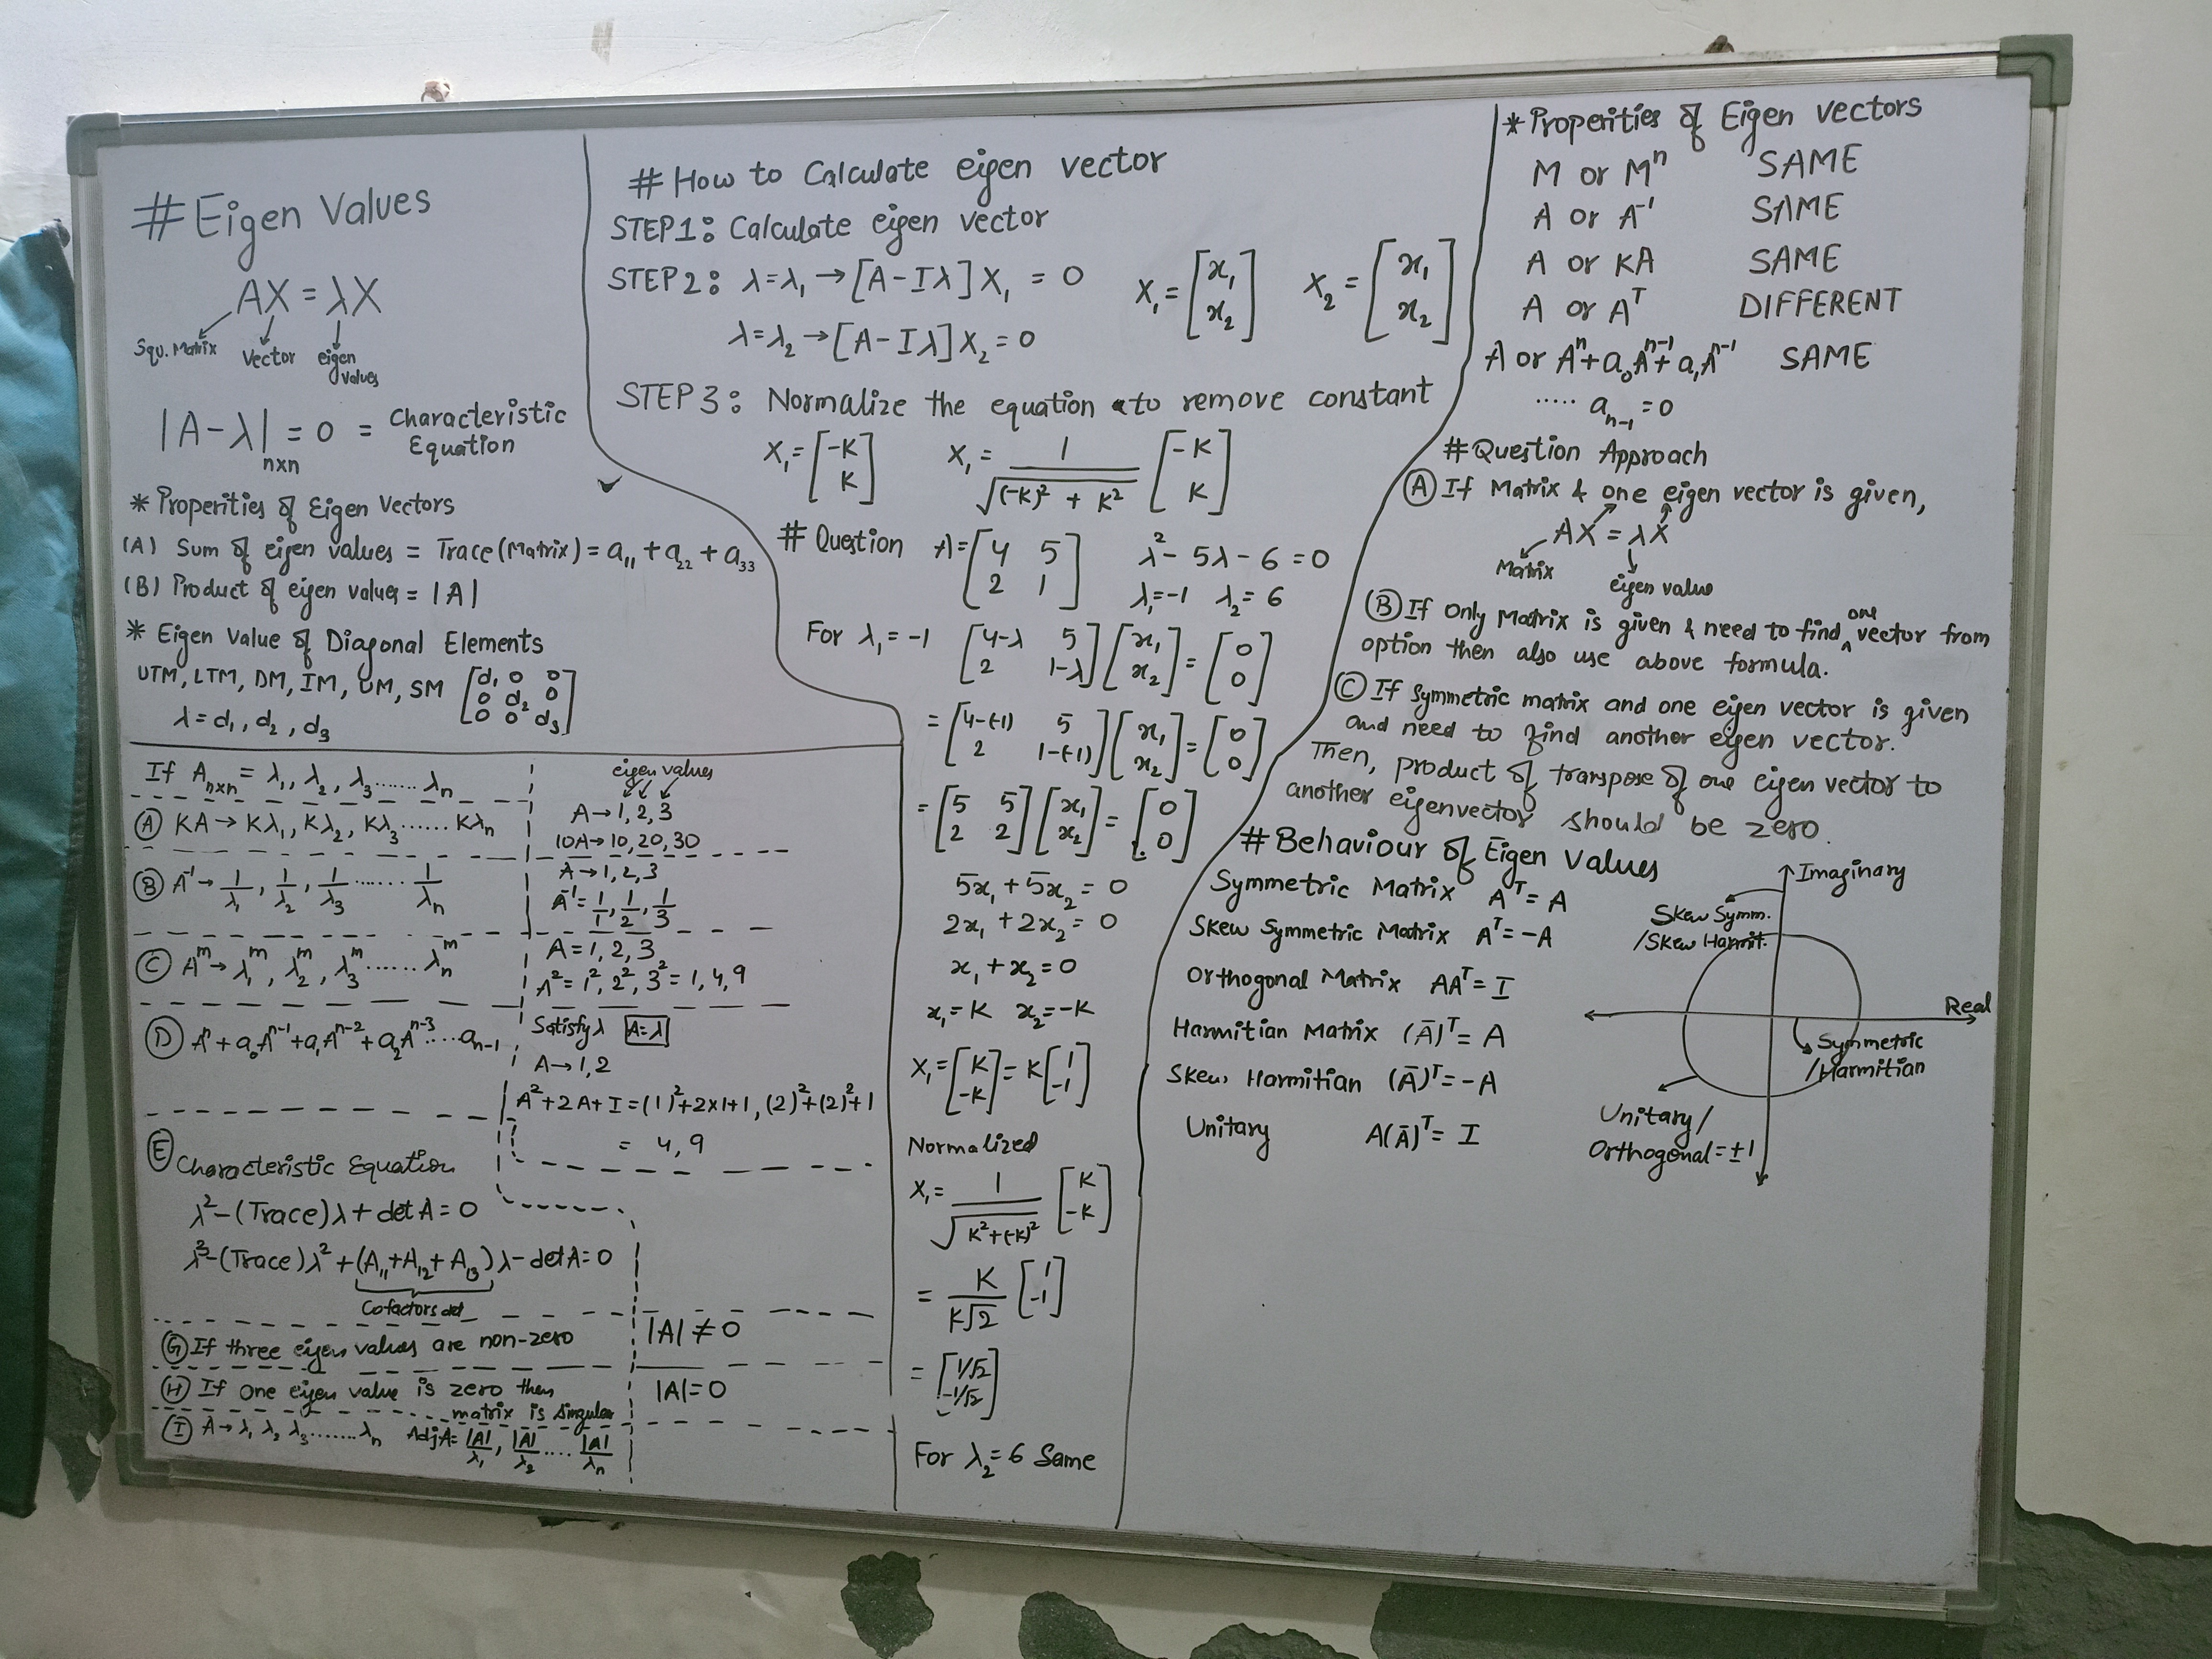 # Eigen Values
AX = λX
Squ. Matrix Vector eigen values
|A-λ|nxn = 0 = Characteristic Equation
* Properities of Eigen Vectors
(A) Sum of eigen values = Trace(Matrix) = a₁₁ + a₂₂ + a₃₃
(B) Product of eigen values = |A|
* Eigen Value of Diagonal Elements
UTM, LTM, DM, IM, UM, SM [d₁ 0 0
0 d₂ 0
0 0 d₃]
λ = d₁, d₂, d₃
If Anxn = λ₁, λ₂, λ₃ ....... λn
eigen values
A → 1, 2, 3
(A) KA → Kλ₁, Kλ₂, Kλ₃ ...... Kλn
10A → 10, 20, 30
(B) A⁻¹ → 1/λ₁, 1/λ₂, 1/λ₃ ...... 1/λn
A → 1, 2, 3
A⁻¹ = 1/1, 1/2, 1/3
(C) Aᵐ → λ₁ᵐ, λ₂ᵐ, λ₃ᵐ ...... λnᵐ
A = 1, 2, 3
A² = 1², 2², 3² = 1, 4, 9
(D) Aⁿ + a₀Aⁿ⁻¹ + a₁Aⁿ⁻² + a₂Aⁿ⁻³ .... an-1
Satisfy λ A = λ
A → 1, 2
A² + 2A + I = (1)² + 2x1+1, (2)² + (2)² + 1
= 4, 9
(E) Characteristic Equation
λ² - (Trace)λ + det A = 0
λ³ - (Trace)λ² + (A₁₁ + A₁₂ + A₁₃)λ - det A = 0
Cofactors det
(G) If three eigen values are non-zero |A| ≠ 0
(H) If one eigen value is zero then |A| = 0
matrix is singular
(I) A → λ₁ λ₂ λ₃ ....... λn AdjA = |A|/λ₁, |A|/λ₂ .... |A|/λn
# How to Calculate eigen vector
STEP 1: Calculate eigen vector
STEP 2: λ = λ₁ → [A - Iλ] X₁ = 0 X₁ = [x₁
x₂] X₂ = [x₁
x₂]
λ = λ₂ → [A - Iλ] X₂ = 0
STEP 3: Normalize the equation to remove constant
X₁ = [-K
K] X₁ = 1/√((-K)² + K²) [-K
K]
# Question A = [4 5
2 1] λ² - 5λ - 6 = 0
λ₁ = -1 λ₂ = 6
For λ₁ = -1 [4-λ 5
2 1-λ] [x₁
x₂] = [0
0]
= [4-(-1) 5
2 1-(-1)] [x₁
x₂] = [0
0]
= [5 5
2 2] [x₁
x₂] = [0
0]
5x₁ + 5x₂ = 0
2x₁ + 2x₂ = 0
x₁ + x₂ = 0
x₁ = K x₂ = -K
X₁ = [K
-K] = K [1
-1]
Normalized
X₁ = 1/√(K² + (-K)²) [K
-K]
= K/K√2 [1
-1]
= [1/√2
-1/√2]
For λ₂ = 6 Same
* Properities of Eigen Vectors
M or Mⁿ SAME
A or A⁻¹ SAME
A or KA SAME
A or Aᵀ DIFFERENT
A or Aⁿ + a₀Aⁿ⁻¹ + a₁Aⁿ⁻¹ SAME
..... an-1 = 0
# Question Approach
(A) If Matrix & one eigen vector is given,
AX = λX
Matrix eigen value
(B) If Only Matrix is given & need to find one vector from
option then also use above formula.
(C) If symmetric matrix and one eigen vector is given
and need to find another eigen vector.
Then, product of transpose of one eigen vector to
another eigenvector should be zero.
# Behaviour of Eigen Values
Symmetric Matrix Aᵀ = A
Skew Symmetric Matrix Aᵀ = -A
Orthogonal Matrix AAᵀ = I
Harmitian Matrix (Ā)ᵀ = A
Skew Harmitian (Ā)ᵀ = -A
Unitary A(Ā)ᵀ = I
Imaginary
Skew Symm.
/Skew Harmit.
Real
Symmetric
/Harmitian
Unitary/
Orthogonal = ±1